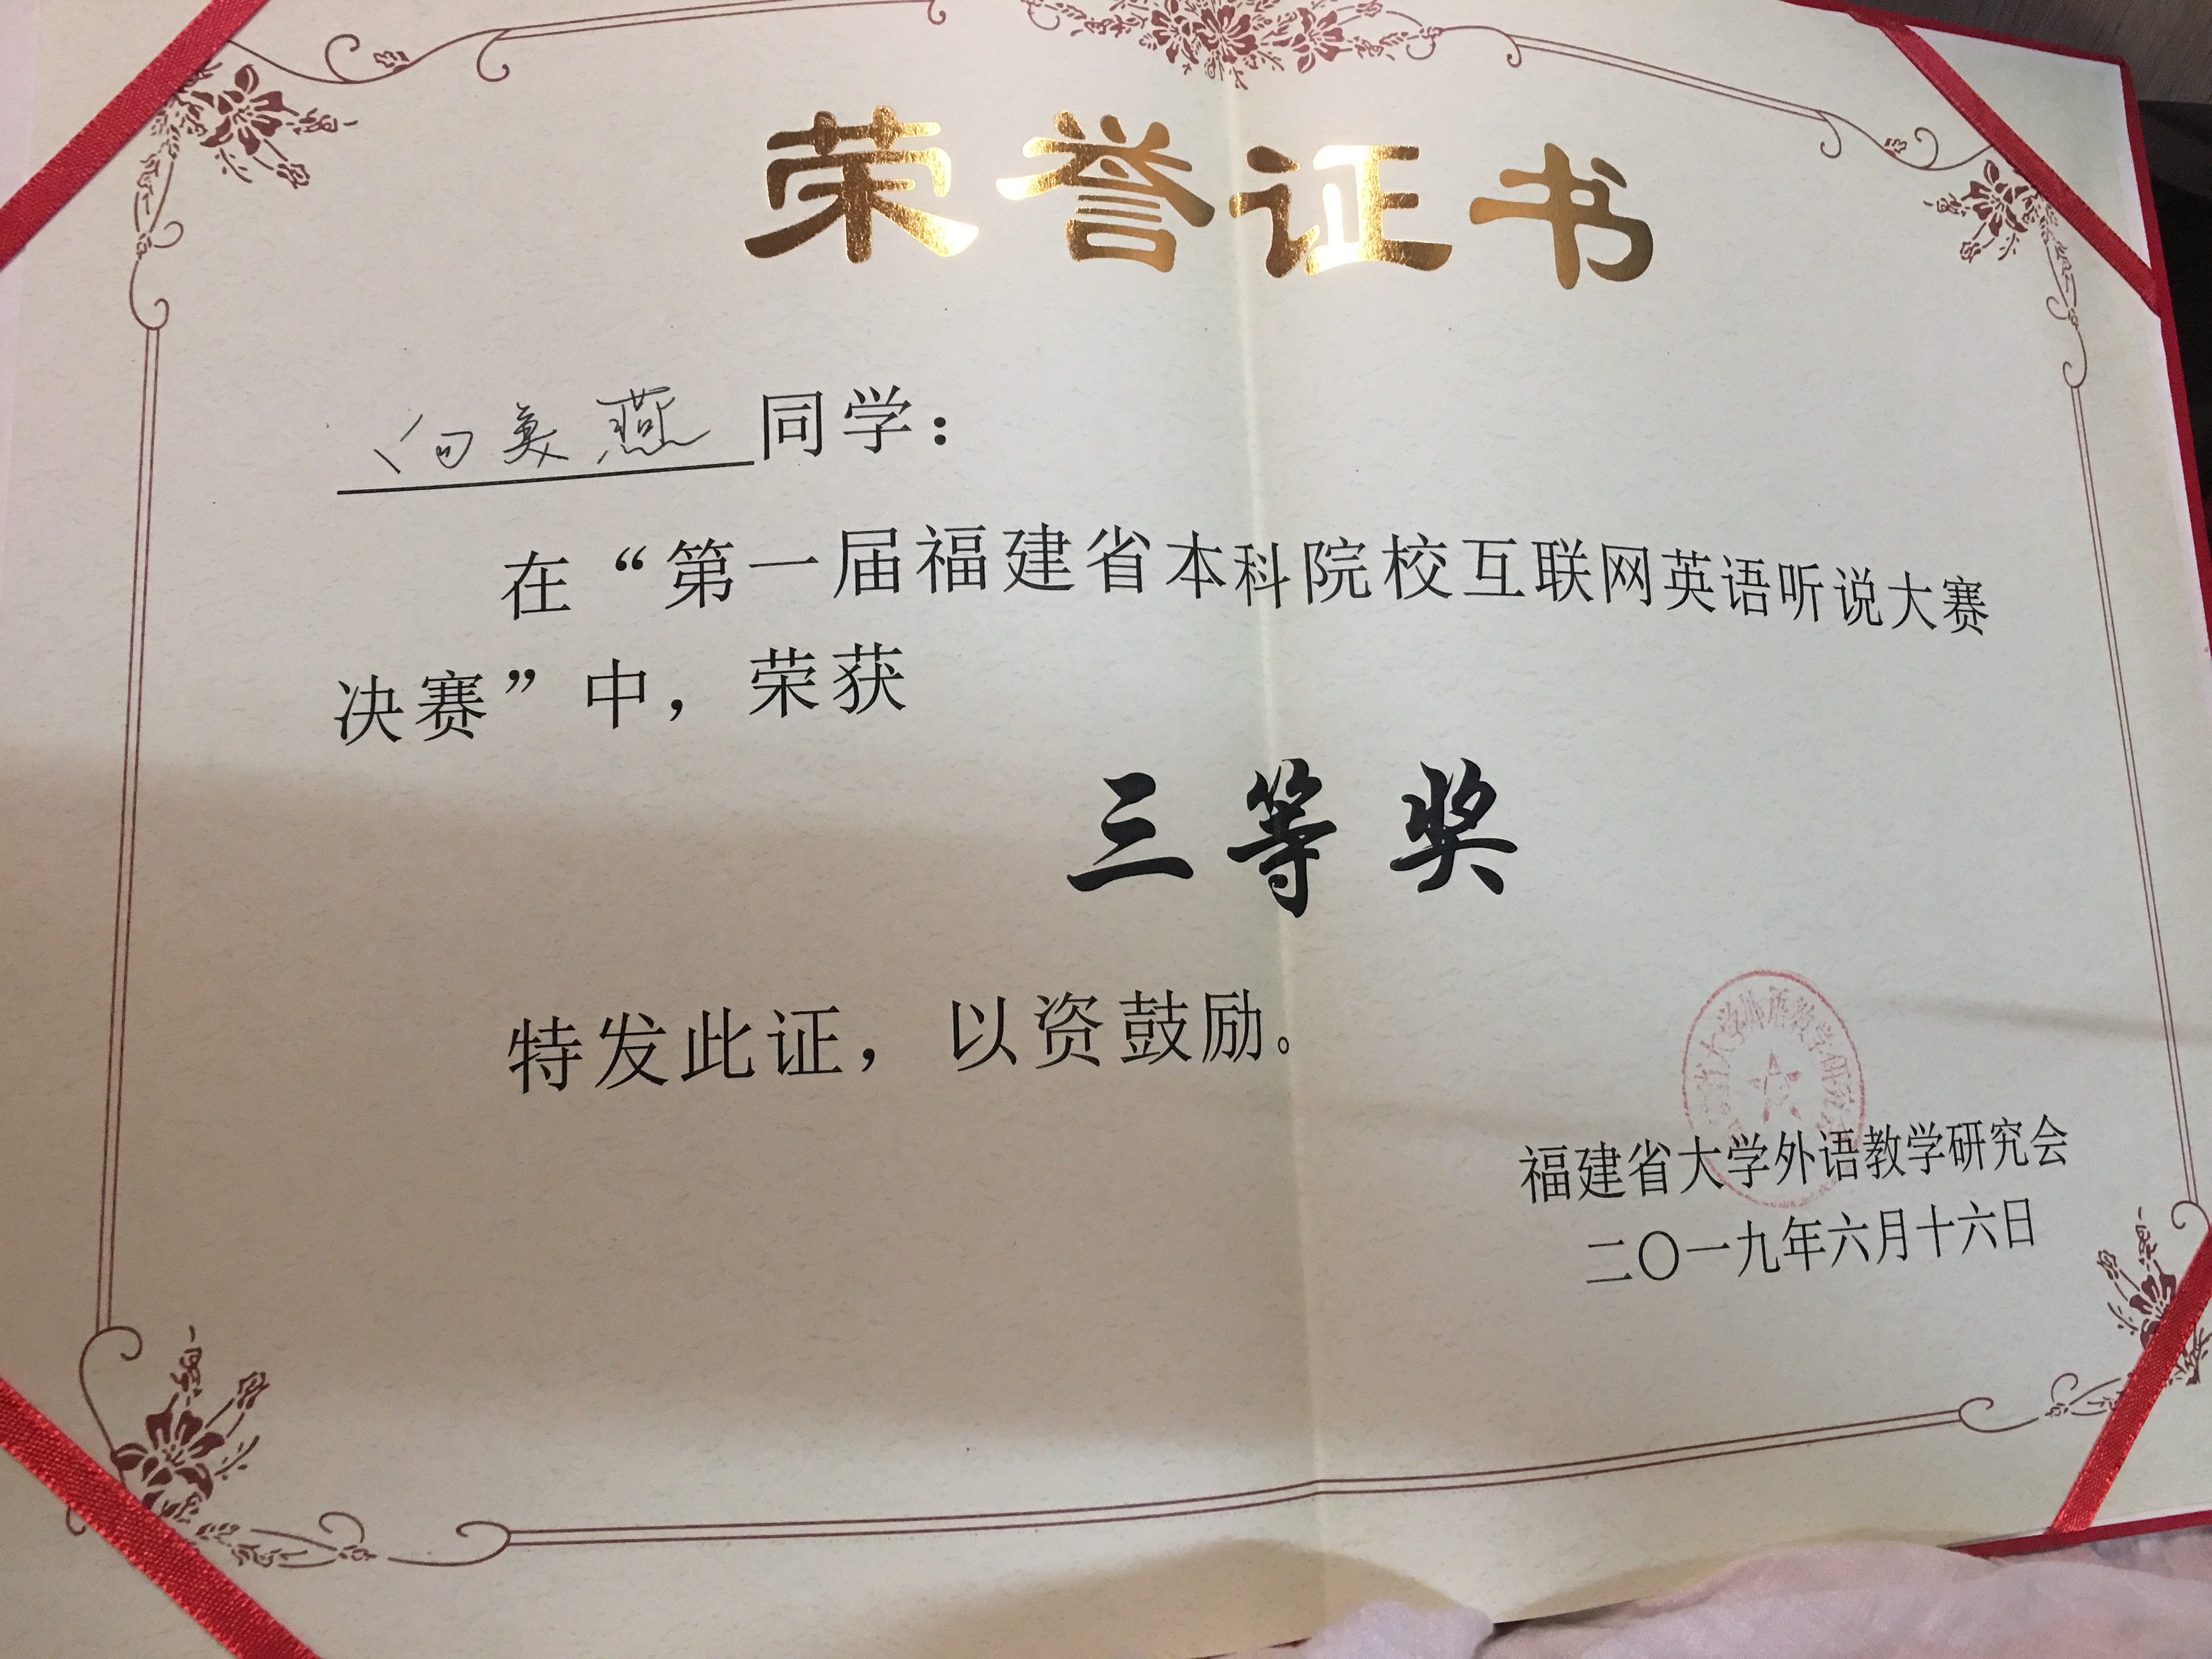 荣誉证书
向美燕同学：
在“第一届福建省本科院校互联网英语听说大赛
决赛”中，荣获
三等奖
特发此证，以资鼓励。
省大学外语教学研究会
福建省大学外语教学研究会
二〇一九年六月十六日